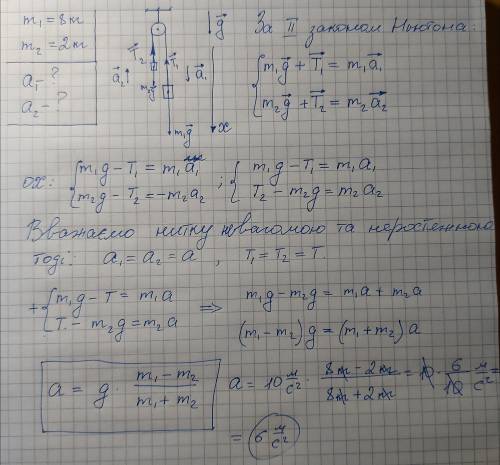 m₁ = 8 кг
m₂ = 2 кг
a₁ - ?
a₂ - ?
T⃗₂ T⃗₁ g⃗
a⃗₂ a⃗₁
m₂g⃗
m₁g⃗ x
За II законом Ньютона:
{ m₁g⃗ + T⃗₁ = m₁a⃗₁
{ m₂g⃗ + T⃗₂ = m₂a⃗₂
ox: { m₁g - T₁ = m₁a₁ ; { m₁g - T₁ = m₁a₁
{ m₂g - T₂ = -m₂a₂ { T₂ - m₂g = m₂a₂
Вважаємо нитку невагомою та нерост
тоді: a₁ = a₂ = a , T₁ = T₂ = T.
+ { m₁g - T = m₁a => m₁g - m₂g = m₁a + m₂a
{ T - m₂g = m₂a (m₁ - m₂)g = (m₁ + m₂)a
a = g · (m₁ - m₂)/(m₁ + m₂) a = 10 м/с² · (8кг - 2кг)/(8кг + 2кг) = 10 · 6/10 м/с² =
= 6 м/с²